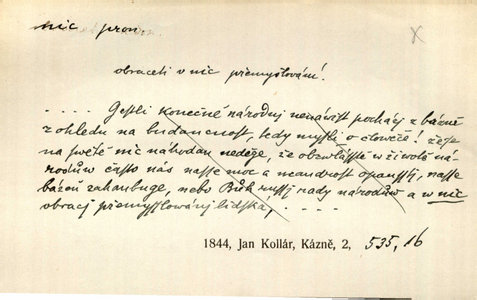 nic pron.
x
obraceti v nic přemyšlování!
. . . . Gestli konečně národnj nenáwist pocházj z bázně
z ohledu na budaucnost, tedy mysli o člowěče! že se
na swětě nic náhodau neděge, že obzwlásstě w žiwotě ná-
rodůw často nás nasse moc a maudrost opausstj, nasse
bázeň zahanbuge, nebo Bůh russj rady národůw a w nic
obracj přemysslowánj lidská, . . . .
1844, Jan Kollár, Kázně, 2, 535, 16